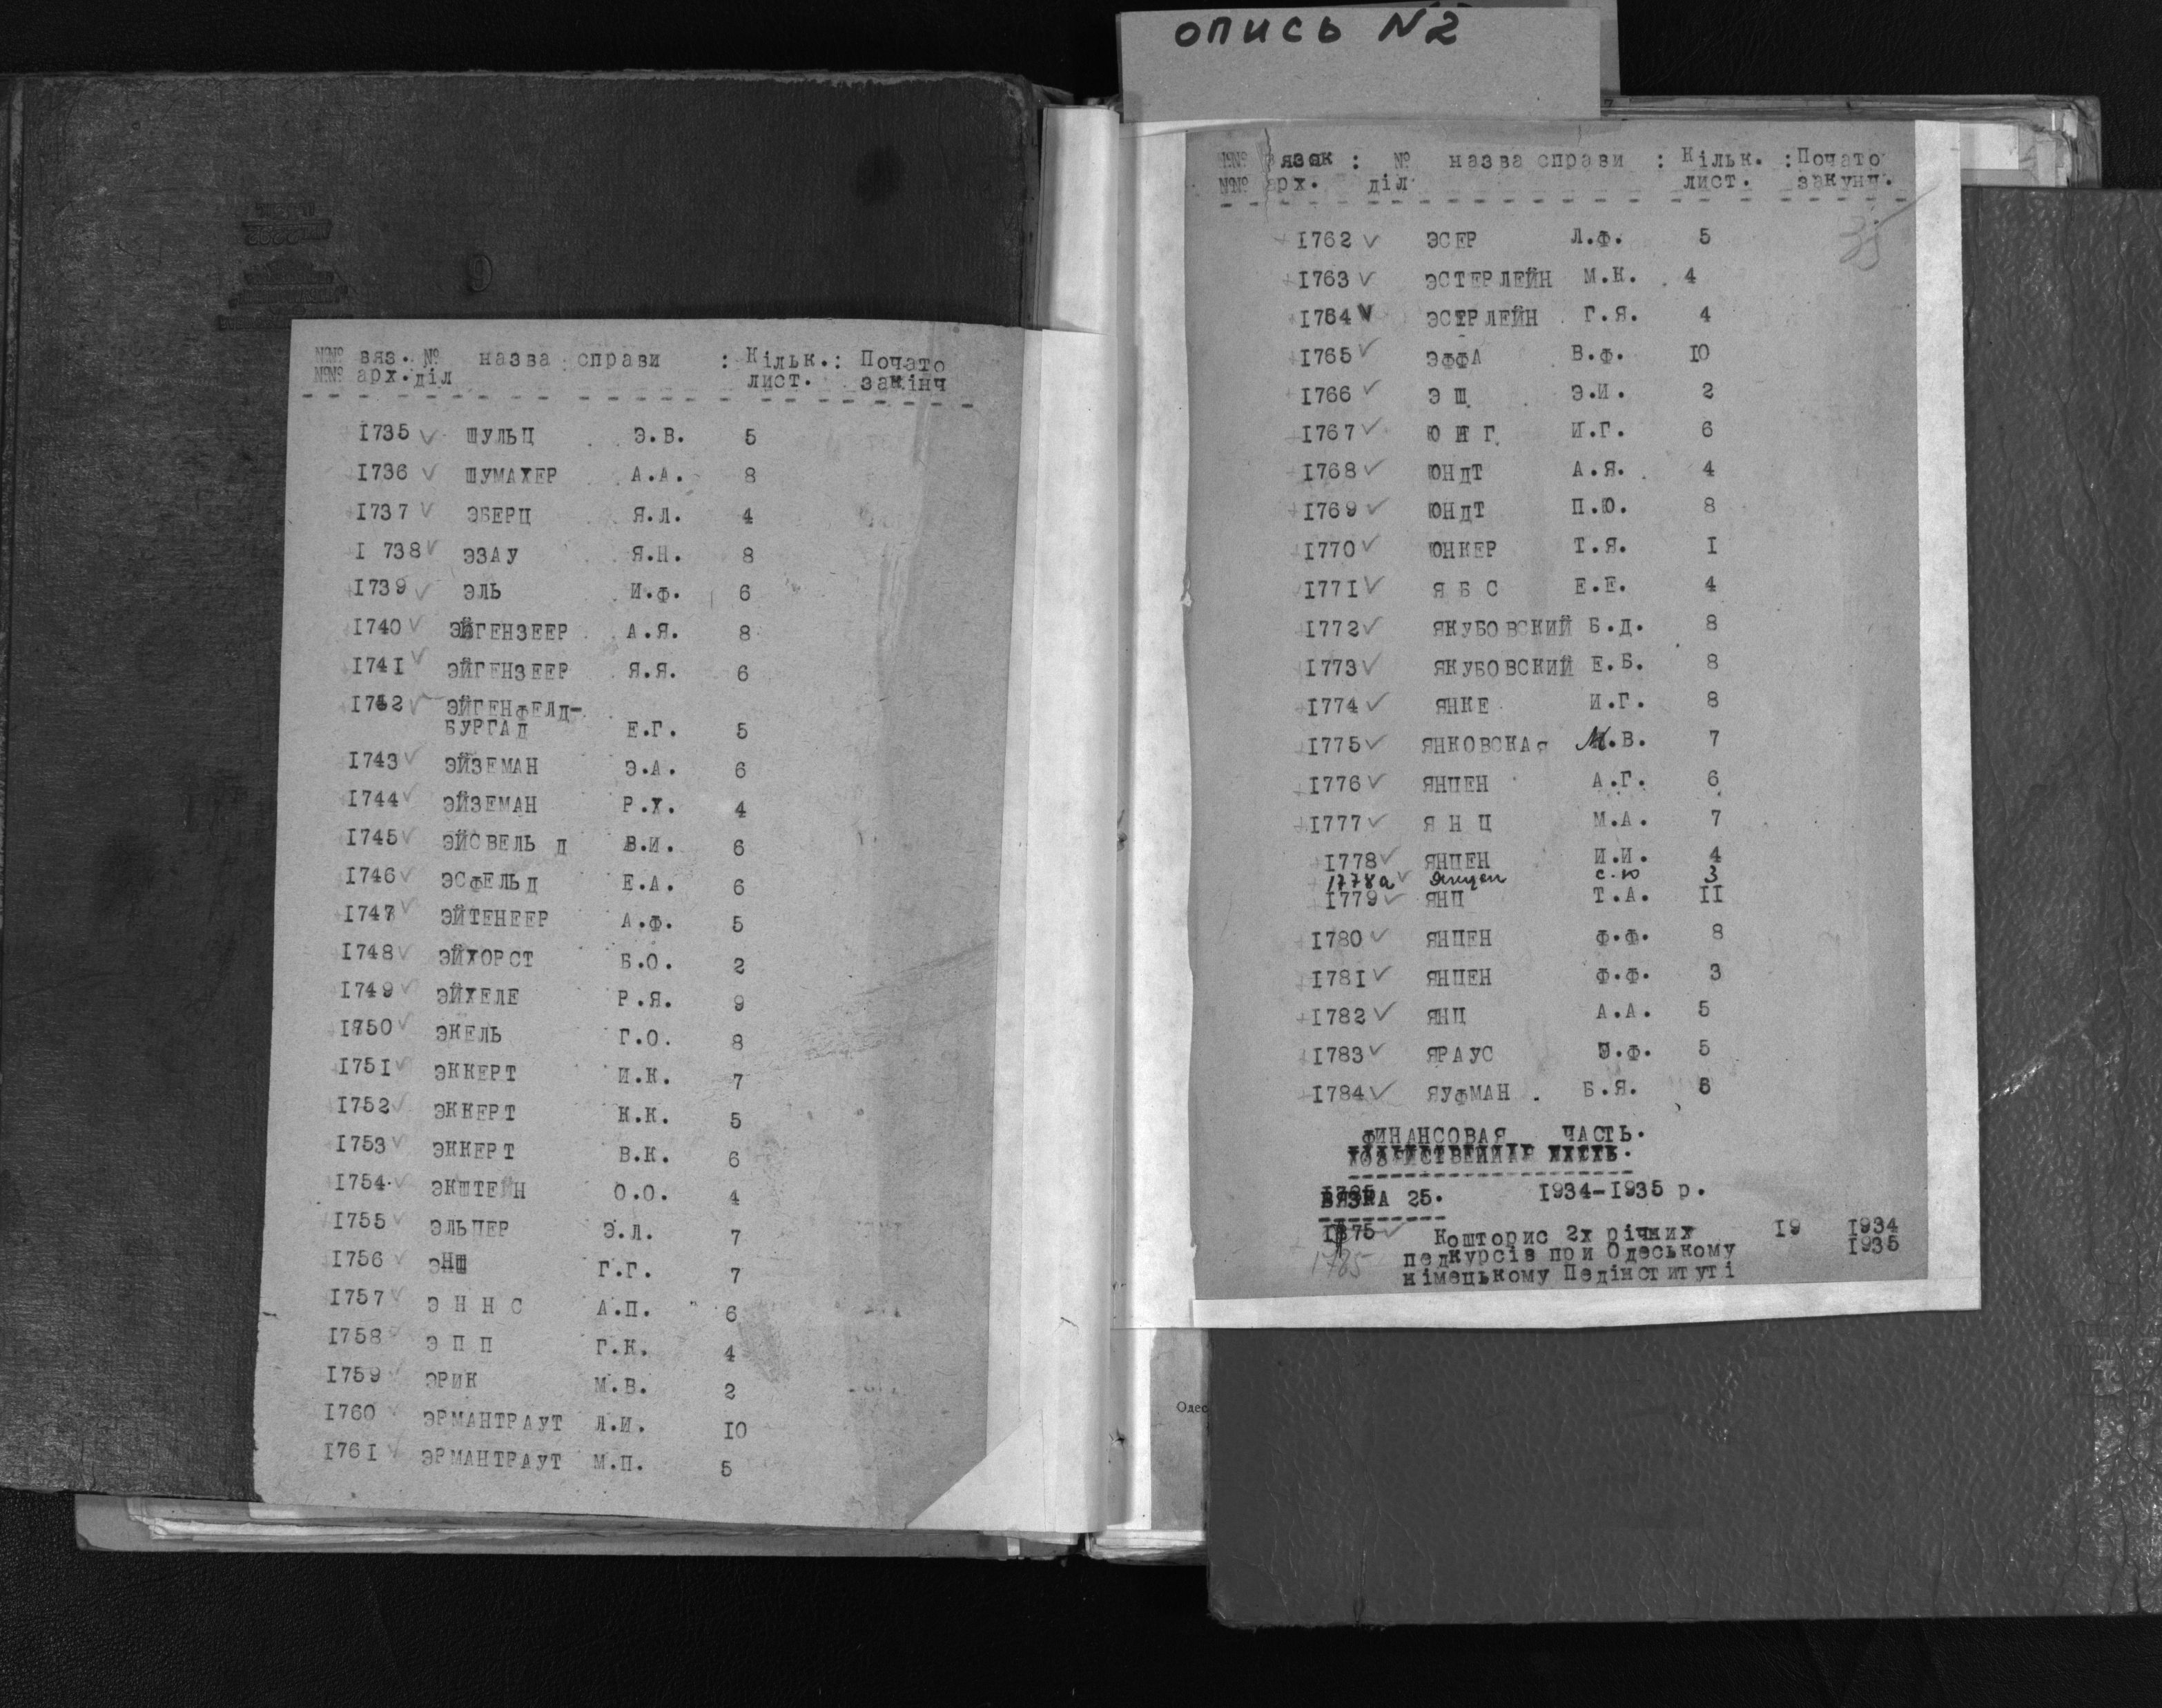 опись N2
№№ вяз. № назва справи : Кільк.: Почато
№№ арх. діл лист. закінч
1735 ШУЛЬЦ Э.В. 5
1736 ШУМАХЕР А.А. 8
1737 ЭБЕРЦ Я.Л. 4
1 738 ЭЗАУ Я.Н. 8
1739 ЭЛЬ И.Ф. 6
1740 ЭЙГЕНЗЕЕР А.Я. 8
1741 ЭЙГЕНЗЕЕР Я.Я. 6
1742 ЭЙГЕНФЕЛД-
БУРГАД Е.Г. 5
1743 ЭЙЗЕМАН Э.А. 6
1744 ЭЙЗЕМАН Р.Х. 4
1745 ЭЙСВЕЛЬ Д В.И. 6
1746 ЭСФЕЛЬД Е.А. 6
1747 ЭЙТЕНЕЕР А.Ф. 5
1748 ЭЙХОРСТ Б.О. 2
1749 ЭЙХЕЛЕ Р.Я. 9
1750 ЭКЕЛЬ Г.О. 8
1751 ЭККЕРТ И.К. 7
1752 ЭККЕРТ К.К. 5
1753 ЭККЕРТ В.К. 6
1754 ЭКШТЕЙН О.О. 4
1755 ЭЛЬЦЕР Э.Л. 7
1756 ЭНШ Г.Г. 7
1757 Э Н Н С А.П. 6
1758 Э П П Г.К. 4
1759 ЭРИК М.В. 2
1760 ЭРМАНТРАУТ Л.И. 10
1761 ЭРМАНТРАУТ М.П. 5
№№ вязок : № назва справи : Кільк. : Почато
№№ арх. діл лист. закунч.
1762 ЭСЕР Л.Ф. 5
1763 ЭСТЕРЛЕЙН М.К. 4
1764 ЭСТРЛЕЙН Г.Я. 4
1765 ЭФФА В.Ф. 10
1766 Э Ш Э.И. 2
1767 Ю Н Г И.Г. 6
1768 ЮНДТ А.Я. 4
1769 ЮНДТ П.Ю. 8
1770 ЮНКЕР Т.Я. 1
1771 Я Б С Е.Е. 4
1772 ЯКУБОВСКИЙ Б.Д. 8
1773 ЯКУБОВСКИЙ Е.Б. 8
1774 ЯНКЕ И.Г. 8
1775 ЯНКОВСКАЯ М.В. 7
1776 ЯНЦЕН А.Г. 6
1777 Я Н Ц М.А. 7
1778 ЯНЦЕН И.И. 4
1778а Янцен С.Ю 3
1779 ЯНЦ Т.А. 11
1780 ЯНЦЕН Ф.Ф. 8
1781 ЯНЦЕН Ф.Ф. 3
1782 ЯНЦ А.А. 5
1783 ЯРАУС Э.Ф. 5
1784 ЯУФМАН Б.Я. 6
ФИНАНСОВАЯ ЧАСТЬ.
ВЯЗКА 25. 1934-1935 р.
Кошторис 2х річних 19 1934
1785 педкурсів при Одеському 1935
німецькому Педінституті
Одес